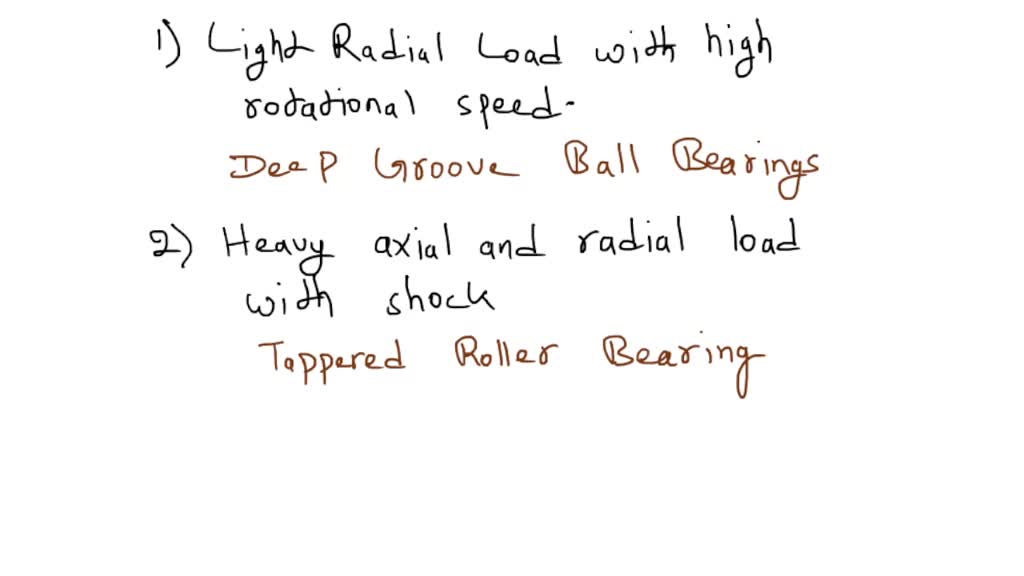 1) Light Radial Load with high
rotational speed.
Deep Groove Ball Bearings
2) Heavy axial and radial load
with shock
Tappered Roller Bearing